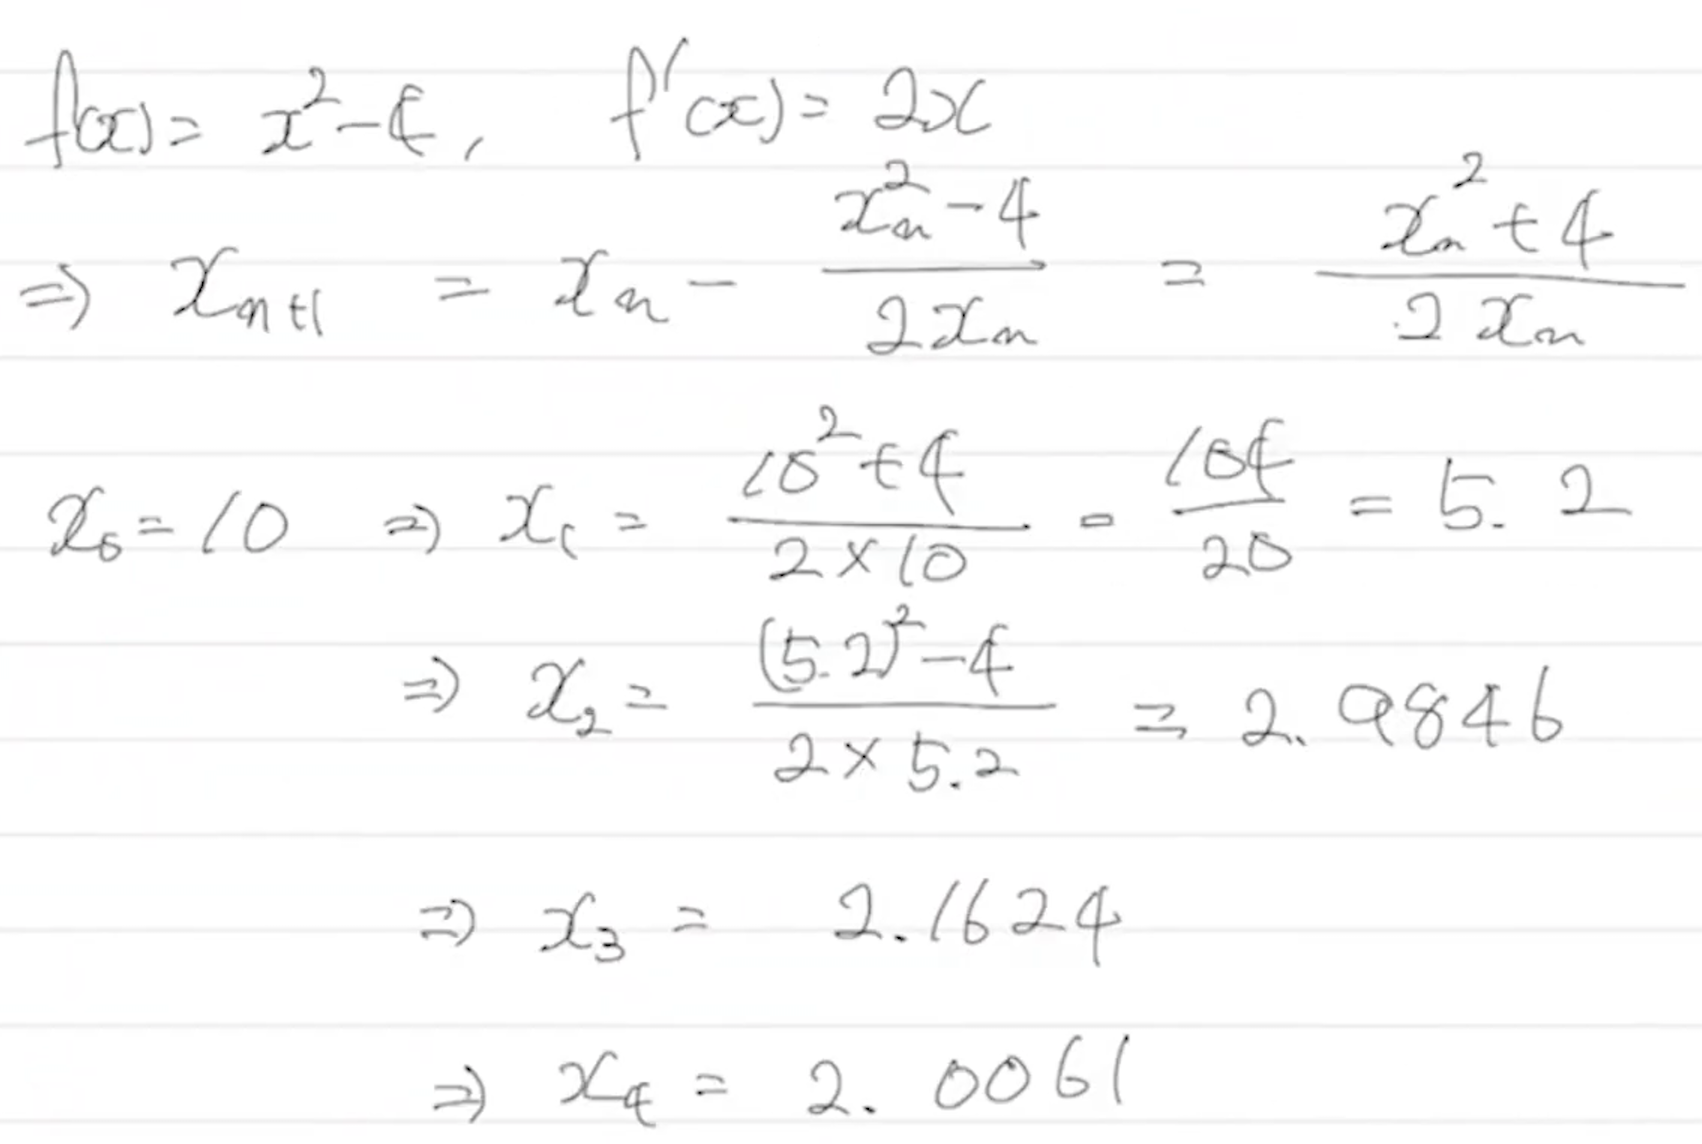 f(x) = x² - 4, f'(x) = 2x
⇒ xₙ₊₁ = xₙ - (xₙ² - 4)/(2xₙ) = (xₙ² + 4)/(2xₙ)
x₀ = 10 ⇒ x₁ = (10² + 4)/(2 × 10) = 104/20 = 5.2
⇒ x₂ = ((5.2)² - 4)/(2 × 5.2) = 2.9846
⇒ x₃ = 2.1624
⇒ x₄ = 2.0061